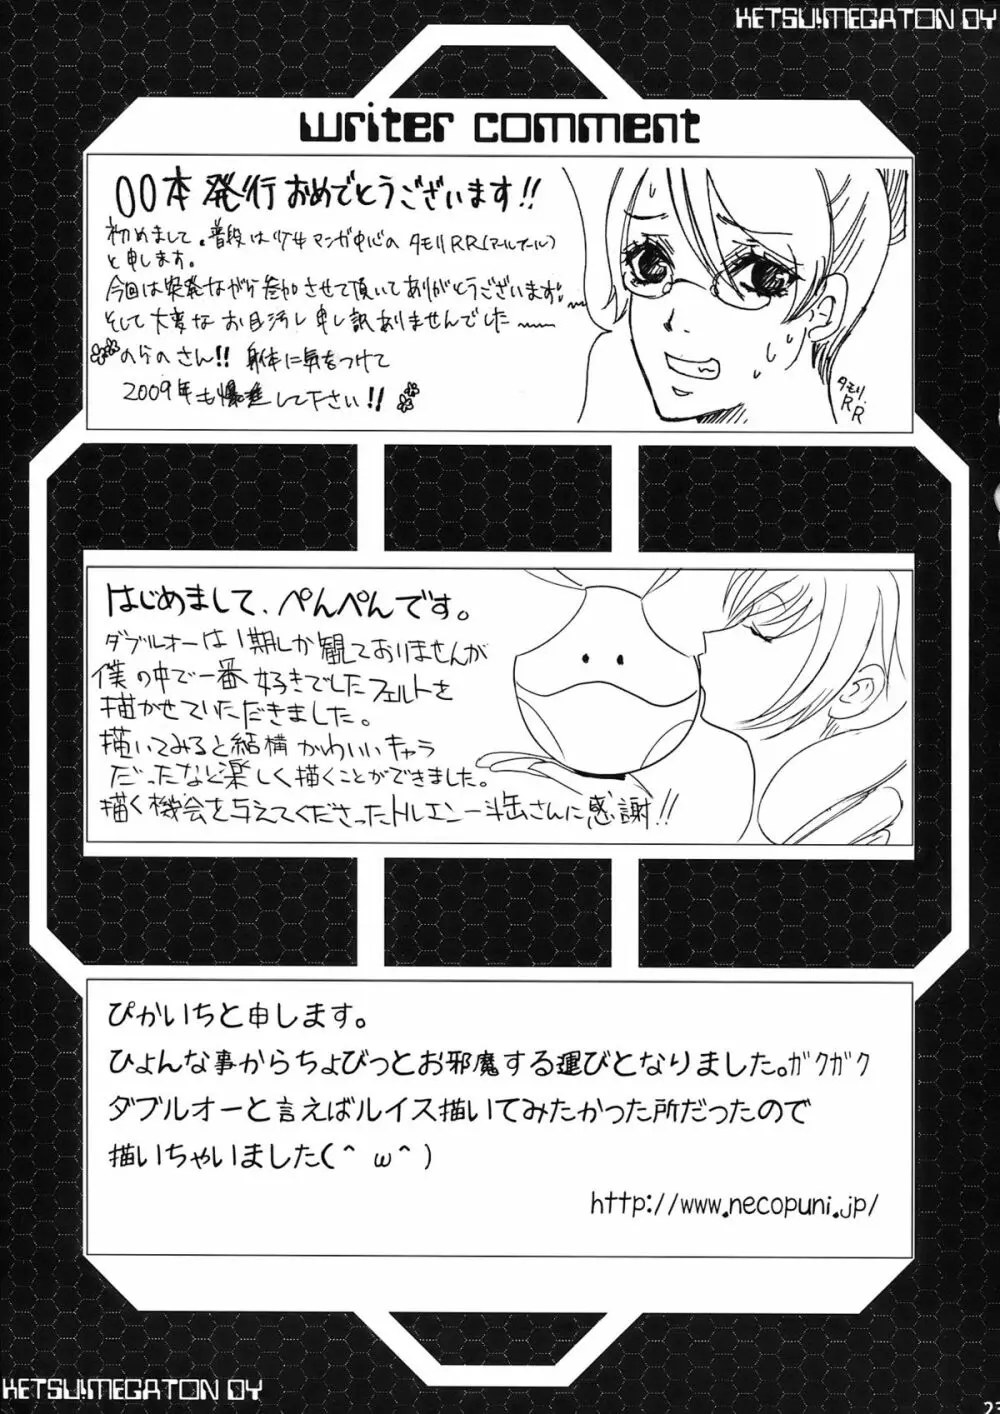 KETSU!MEGATON OY
writer comment
00本 発行おめでとうございます!!
初めまして。普段は少年マンガ中心の タモリRR(アールアール)
と申します。
今回は突発ながら参加させて頂いてありがとうございます。
そして大変な お目汚し 申し訳ありませんでした〜
のらのさん!! 身体に気をつけて
2009年も爆進して下さい!!
タモリ.
RR
はじめまして、ぺんぺんです。
ダブルオーは1期しか観ておりませんが
僕の中で一番好きでしたフェルトを
描かせていただきました。
描いてみると結構かわいいキャラ
だったなど楽しく描くことができました。
描く機会を与えてくださったトルエン一斗缶さんに感謝!!
ぴかいちと申します。
ひょんな事からちょびっとお邪魔する運びとなりました。ガクガク
ダブルオーと言えばルイス描いてみたかった所だったので
描いちゃいました(^ω^)
http://www.necopuni.jp/
KETSU!MEGATON OY